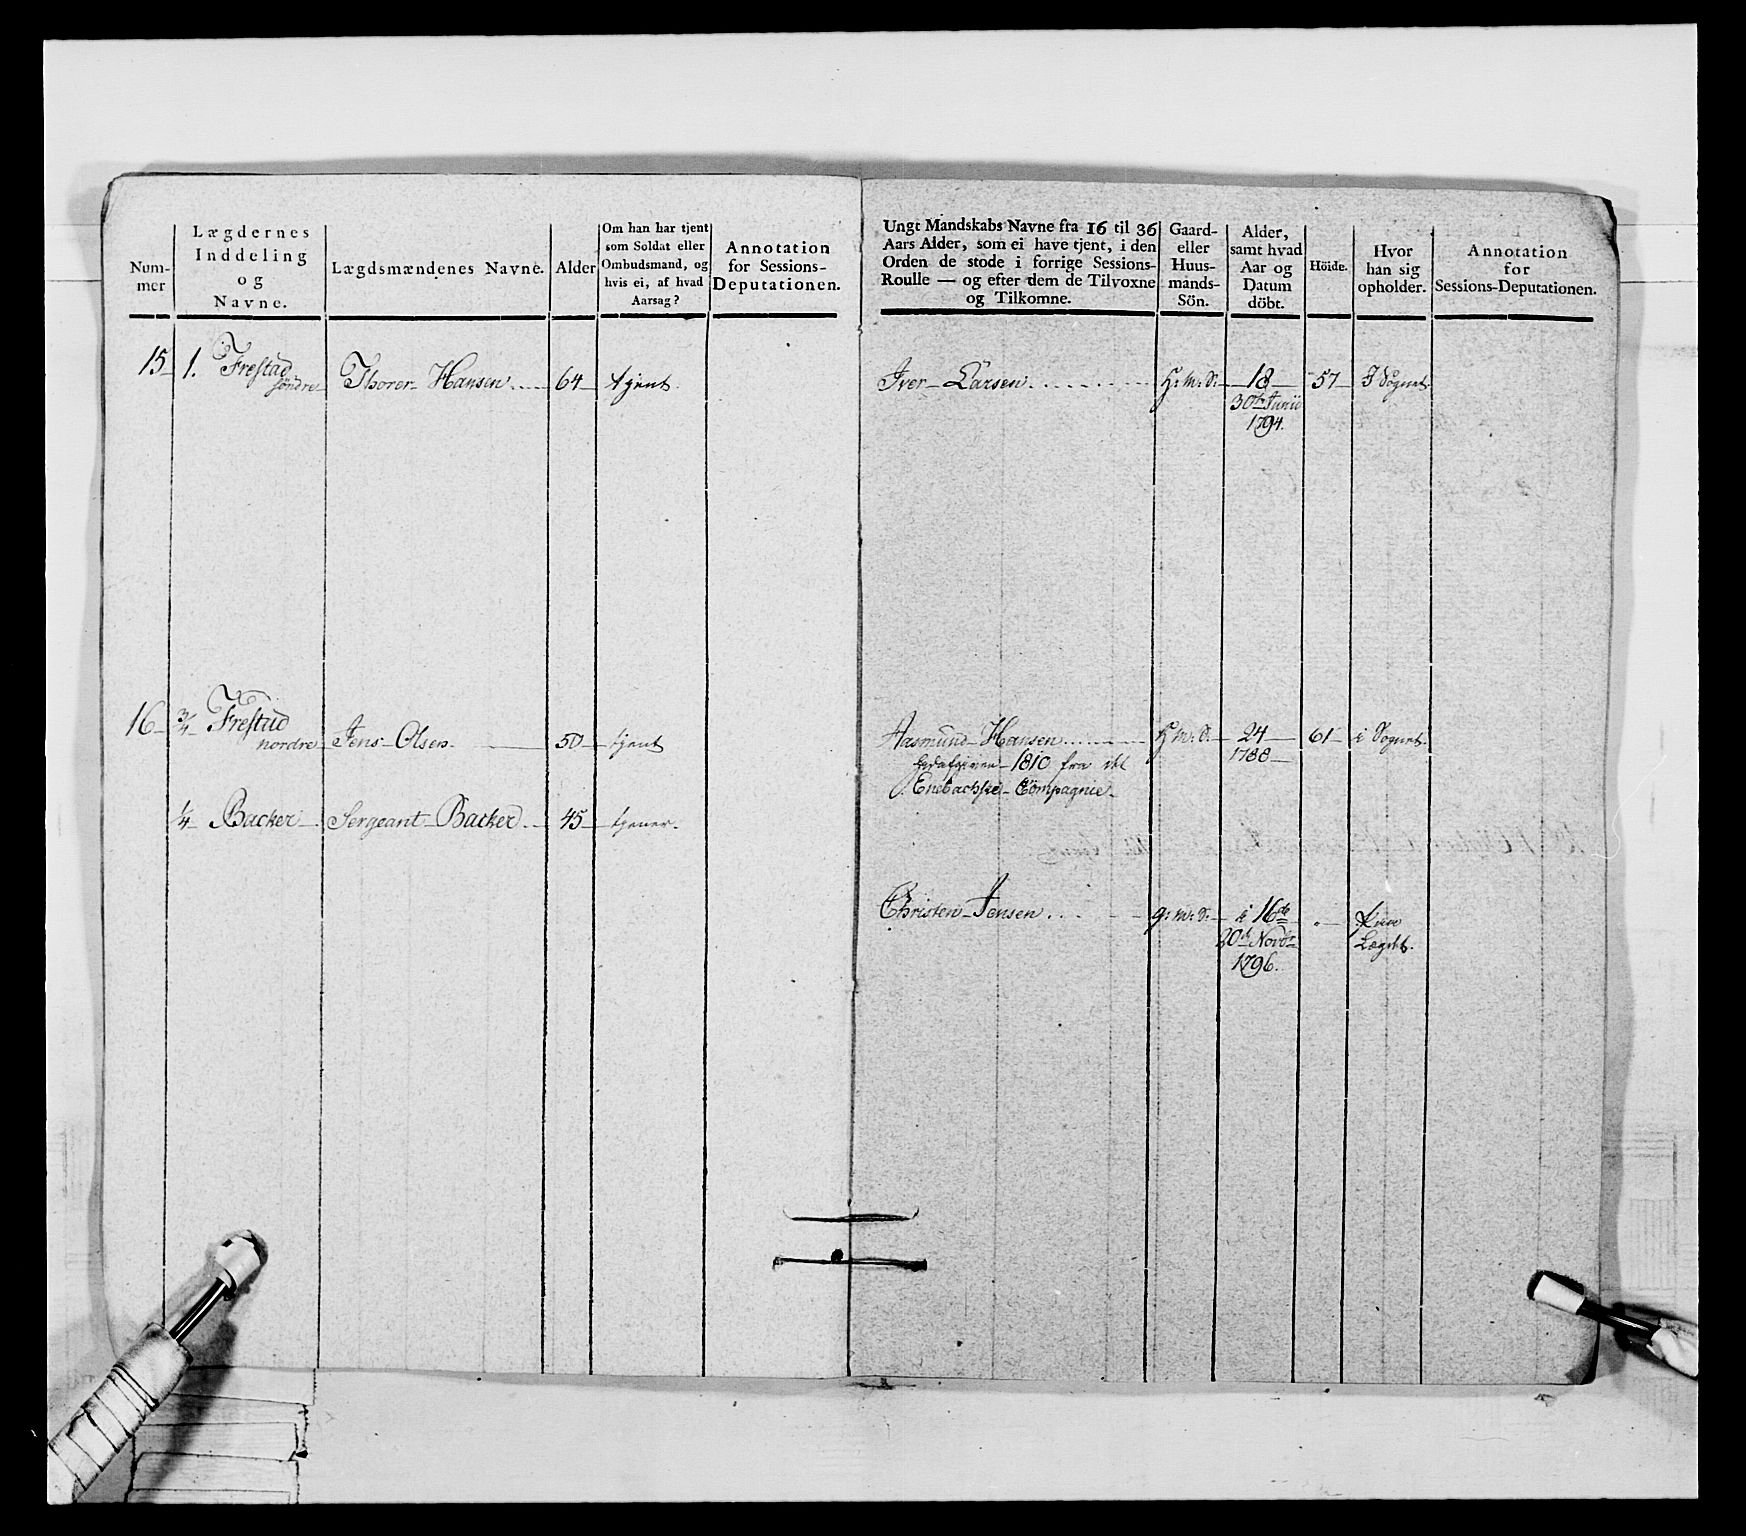 Num-
mer
Lægdernes
Inddeling
og
Navne.
Lægdsmændenes Navne.
Alder
Om han har tjent
som Soldat eller
Ombudsmand, og
hvis ei, af hvad
Aarsag?
Annotation
for Sessions-
Deputationen.
15 1. Frestad
söndre
Thorer Hansen 64 tjent.
16 3/4 Frestad
nordre
Jens Olsen 50 tjent
1/4 Backer Sergeant Backer 45 tjener.
Ungt Mandskabs Navne fra 16 til 36
Aars Alder, som ei have tjent, i den
Orden de stode i forrige Sessions-
Roulle — og efter dem de Tilvoxne
og Tilkomne.
Gaard-
eller
Huus-
mands-
Sön.
Alder,
samt hvad
Aar og
Datum
döbt.
Höide.
Hvor
han sig
opholder.
Annotation
for
Sessions-Deputationen.
Iver Larsen H: M: S: 18 57 I Sognet
30te Junii
1794.
Aasmund Hansen H: M: S: 24 61 i Sognet.
1788
1810 fra det
Enebachske Compagnie
Christen Jensen g: M: S: i 16de
20de Novbr
1796.
Lægdet.